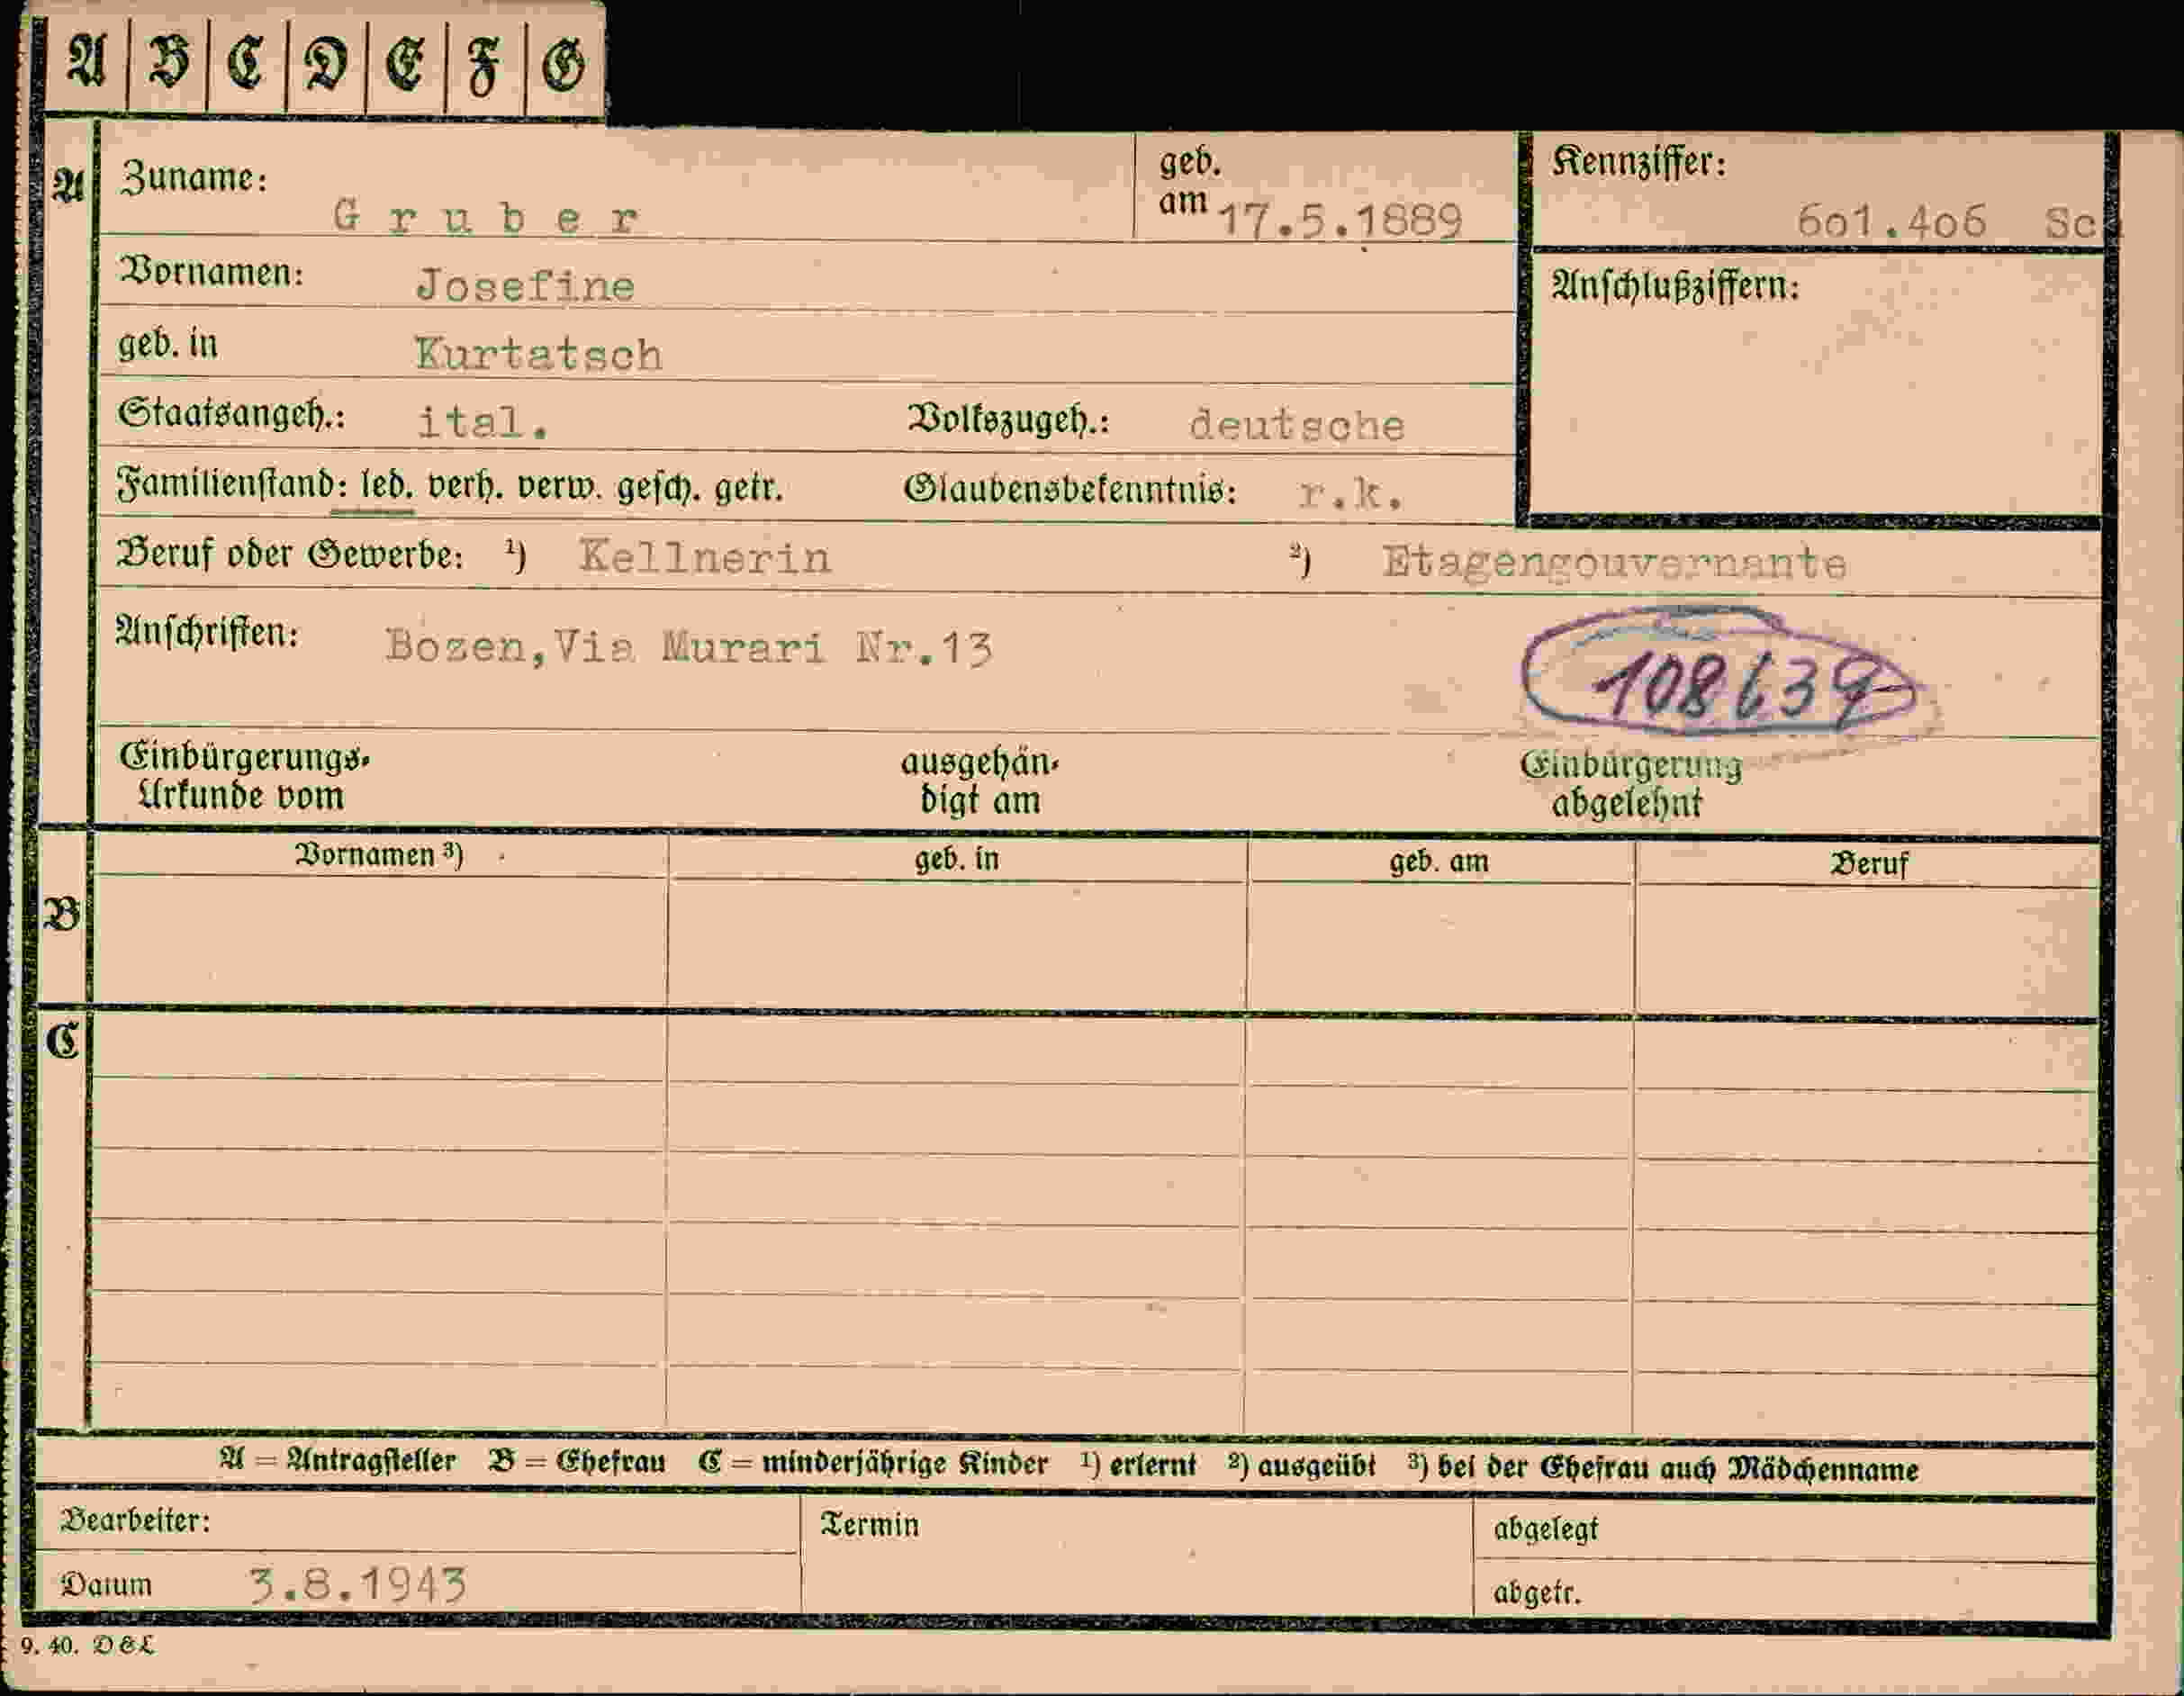 A B C D E F G
A
Zuname: Gruber
geb. am 17.5.1889
Kennziffer: 601.406 Sch
Vornamen: Josefine
Anschlußziffern:
geb. in Kurtatsch
Staatsangeh.: ital. Volkszugeh.: deutsche
Familienstand: led. verh. verw. gesch. getr. Glaubensbekenntnis: r.k.
Beruf oder Gewerbe: ¹) Kellnerin ²) Etagengouvernante
Anschriften: Bozen,Via Murari Nr.13
108639
Einbürgerungs-Urkunde vom ausgehändigt am Einbürgerung abgelehnt
Vornamen ³) geb. in geb. am Beruf
B
C
A = Antragsteller B = Ehefrau C = minderjährige Kinder ¹) erlernt ²) ausgeübt ³) bei der Ehefrau auch Mädchenname
Bearbeiter: Termin abgelegt
Datum 3.8.1943 abgetr.
9. 40. D&L